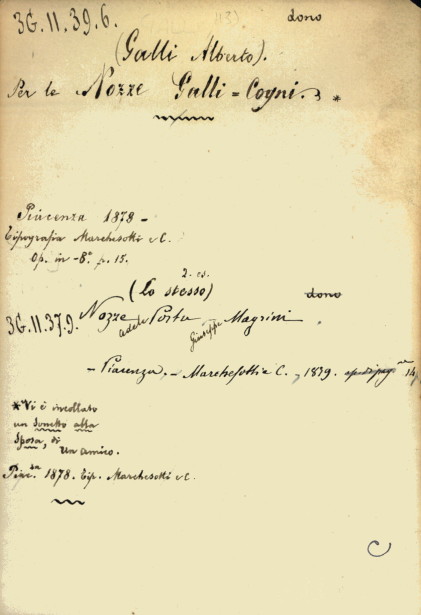 3G.11.39.6. dono
(Galli Alberto).
Per le Nozze Galli=Cogni. *
Piacenza 1878 -
Tipografia Marchesotti e C.
Op. in -8º p. 15.
2. es.
(Lo stesso) dono
3G.11.37.9. Nozze adele Porta Giuseppe Magrini
- Piacenza. - Marchesotti e C. , 1839. 14,
* Vi è incollato
un sonetto alla
Sposa, di
un amico.
1878. Tip. Marchesotti e C.